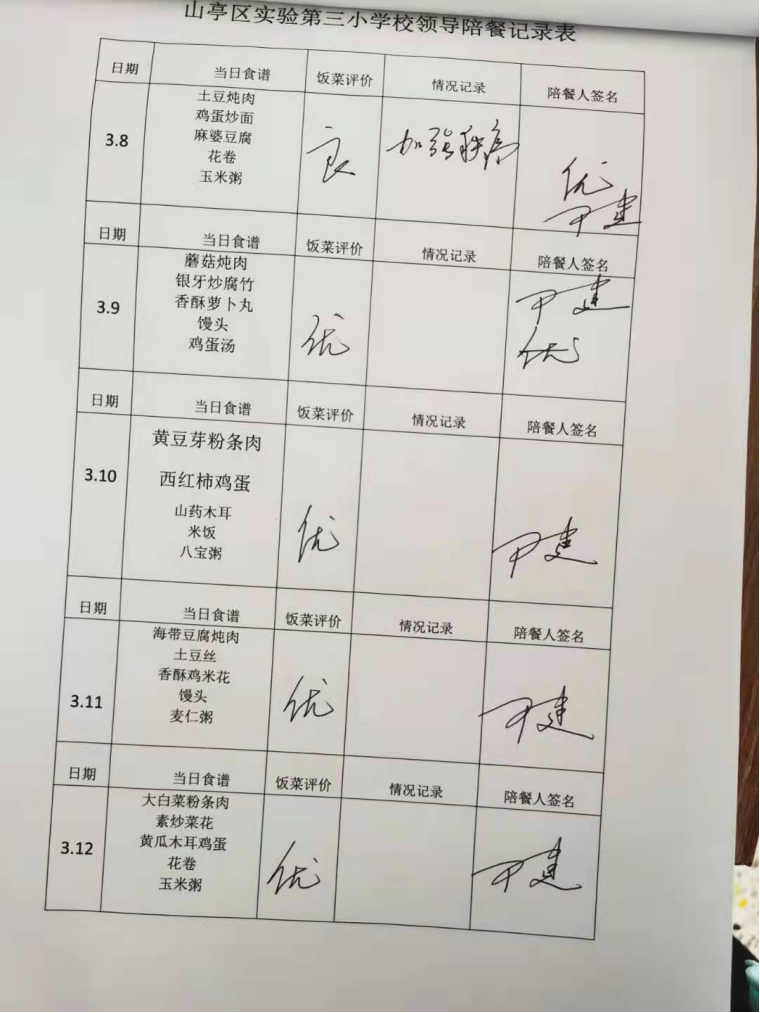 山亭区实验第三小学校领导陪餐记录表
日期 当日食谱 饭菜评价 情况记录 陪餐人签名
3.8
土豆炖肉
鸡蛋炒面
麻婆豆腐
花卷
玉米粥
良
加强
优
尹建
日期 当日食谱 饭菜评价 情况记录 陪餐人签名
3.9
蘑菇炖肉
银牙炒腐竹
香酥萝卜丸
馒头
鸡蛋汤
优
尹建
优
日期 当日食谱 饭菜评价 情况记录 陪餐人签名
3.10
黄豆芽粉条肉
西红柿鸡蛋
山药木耳
米饭
八宝粥
优
尹建
日期 当日食谱 饭菜评价 情况记录 陪餐人签名
3.11
海带豆腐炖肉
土豆丝
香酥鸡米花
馒头
麦仁粥
优
尹建
日期 当日食谱 饭菜评价 情况记录 陪餐人签名
3.12
大白菜粉条肉
素炒菜花
黄瓜木耳鸡蛋
花卷
玉米粥
优
尹建